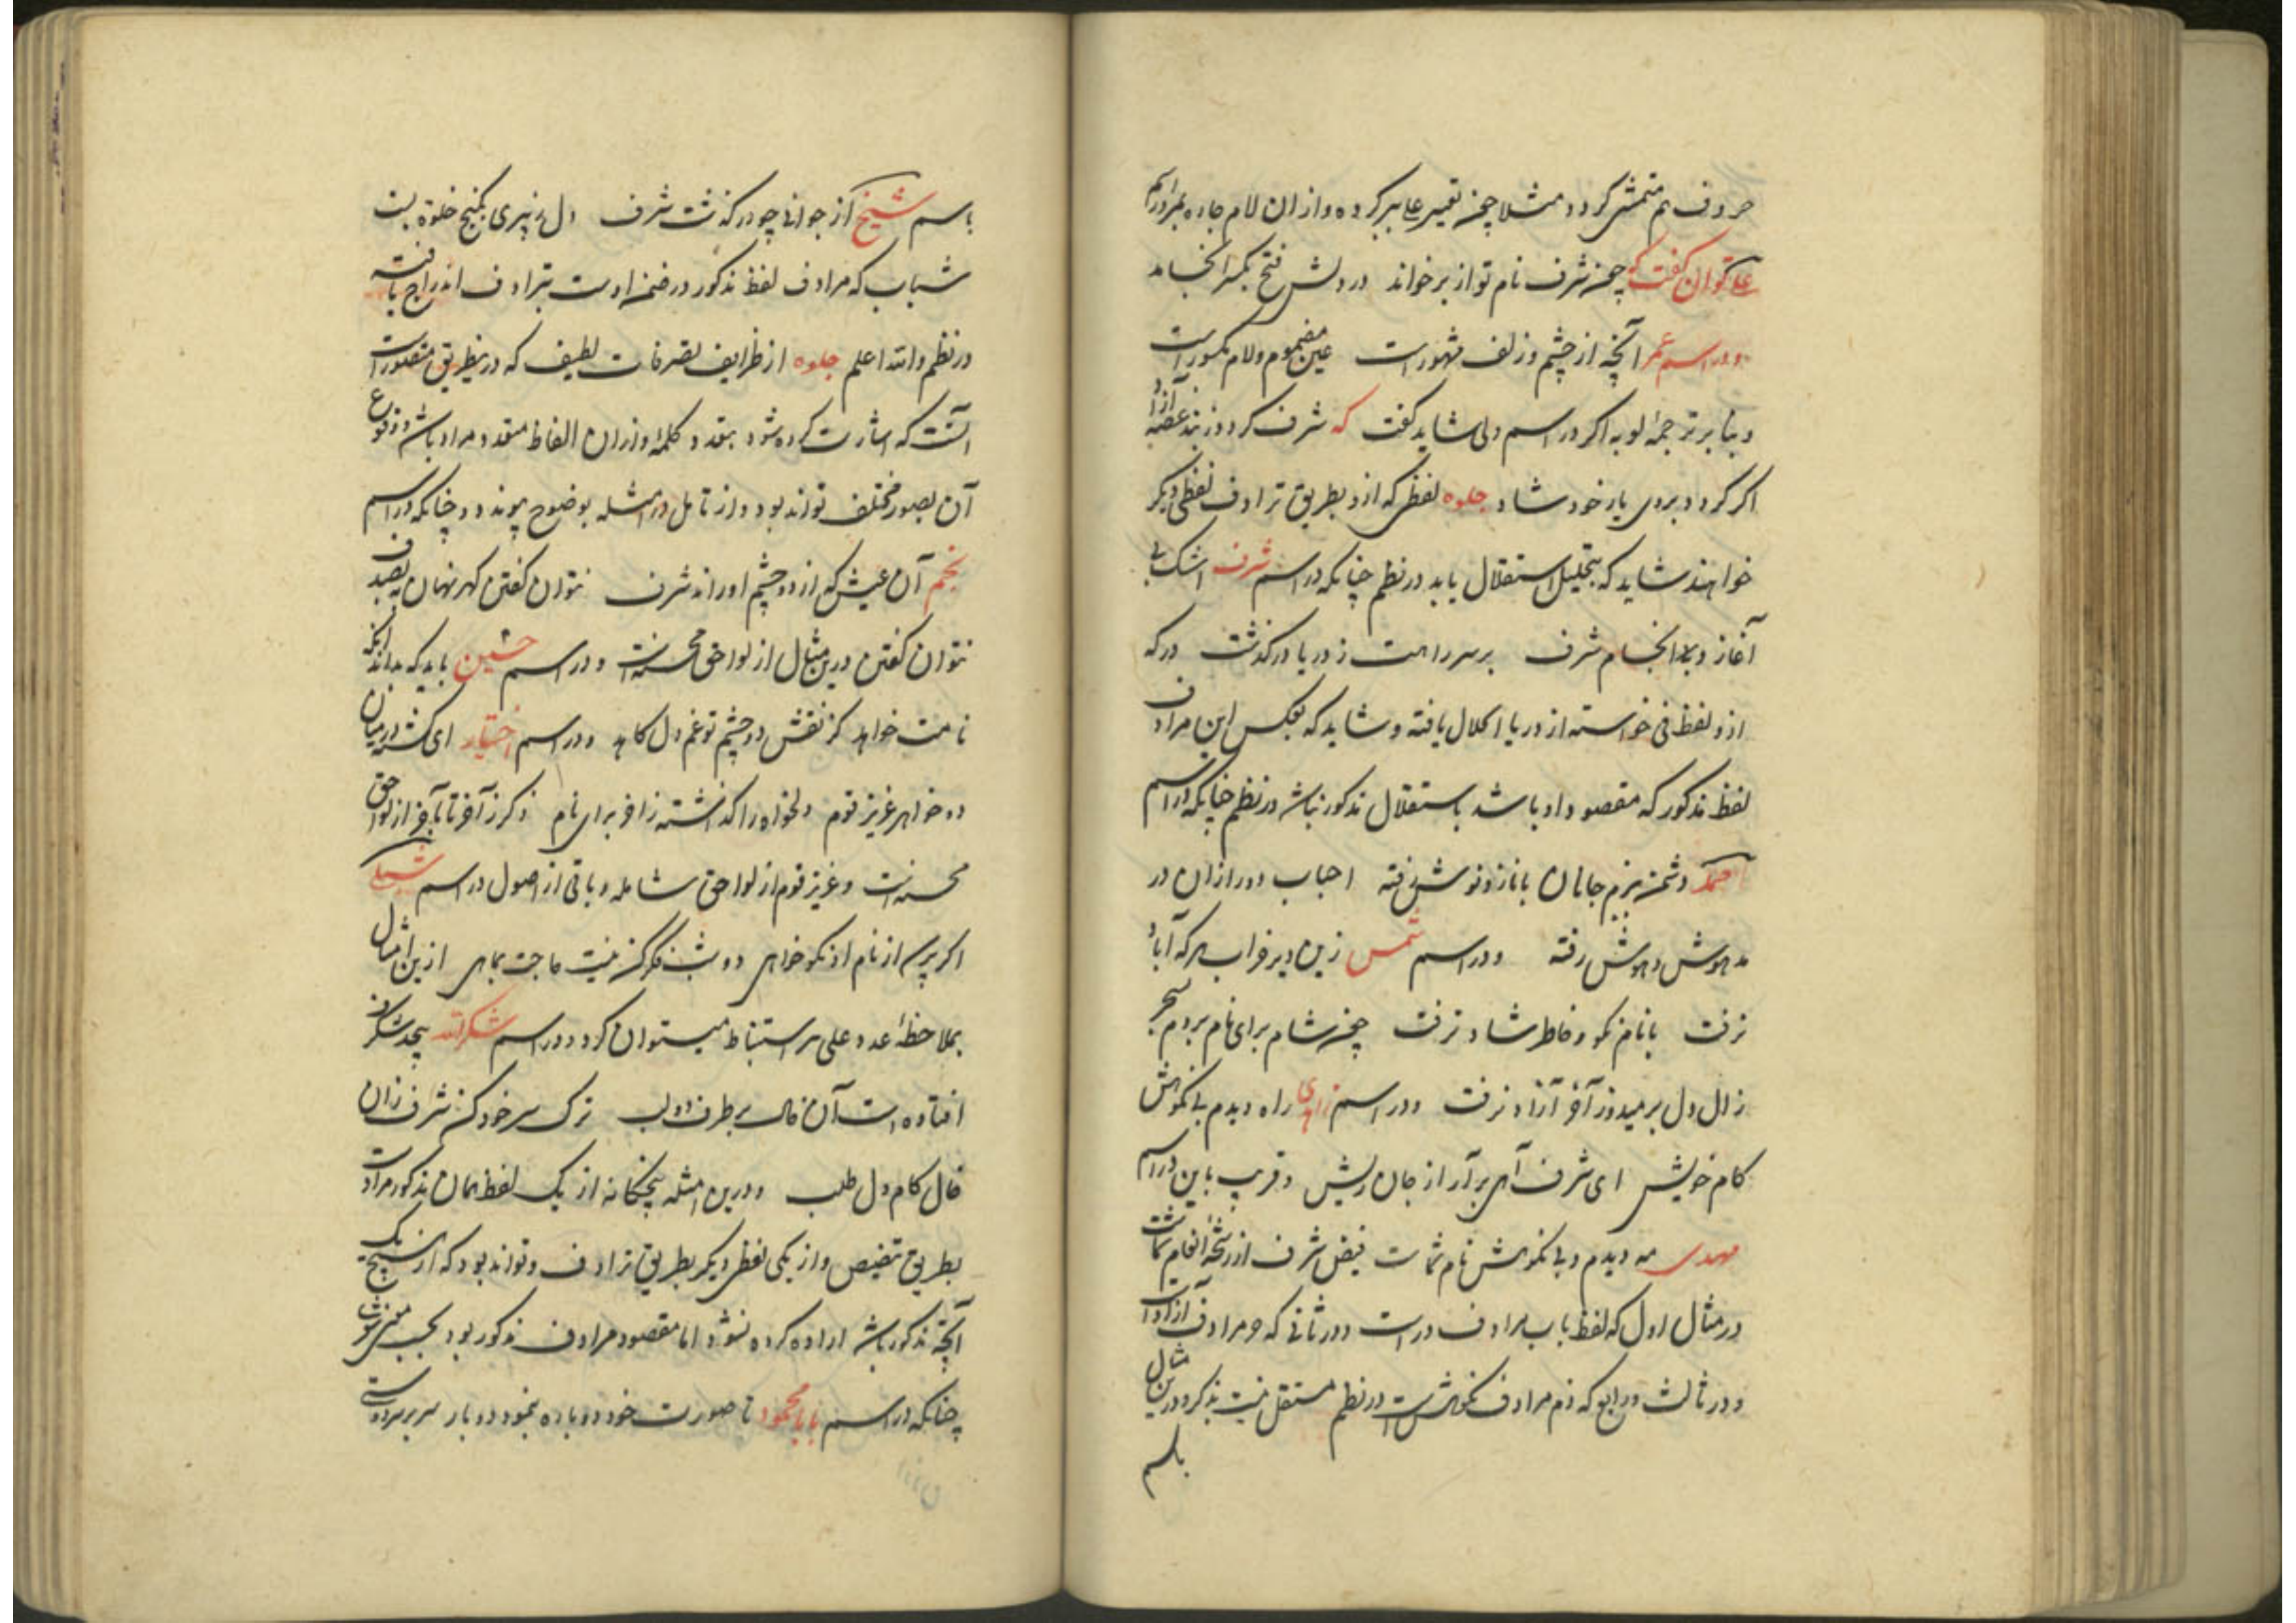 حروف هم متمشی کردد مثلا چون تعبیر علی بر کرده و از ان لام جاره
علی توان کفت که چون شرف نام تو از بر خواند در دلش فتح بکسر انجامد
و در اسم عمر آنچه از چشم و زلف مشهورست عین مضموم و لام مکسورست
و بنابر ترجمه لو به اکر در اسم ولی شاید کفت که شرف کردد ز بند غصه آزاد
اکر کردد بروی یار خود شاد جلوه لفظی که ازو بطریق ترادف لفظی دیکر
خواهند شاید که بتحلیل استقلال یابد در نظم چنانکه در اسم شرف اشک بی
آغاز و بی انجام شرف بر سر راهت ز دریا درکذشت در که
ازو لفظ فی خواسته از دریا اکلال یافته و شاید که بعکس این مرادف
لفظ مذکور که مقصود او باشد باستقلال مذکور نباشد در نظم چنانکه در اسم
احمد دشمن ببزم جانان با ناز و نوش رفته احباب دور ازان در
مدهوش و هوش رفته و در اسم شمس زین دیر خراب هر که آباد
نرفت با نام نکو و خاطر شاد نرفت چون شام برای نام بردم بسحر
زال دل بر میدوز آخر آزاد نرفت و در اسم راه دیدم بی نکوهش
کام خویش ای شرف آهی برآر از جان ریش و قریب باین در اسم
مهدی مه دیدم و بی نکوهش نام شماست فیض شرف از رشحه انعام شماست
در مثال اول که لفظ باب مرادف درست و در ثانی که و مرادف آزادست
و در ثالث و رابع که ذم مرادف نکوهش است در نظم مستقل نیست بذکر و درین مثال
باسم
باسم شیخ از جوانی چو درکذشت شرف دل ز پیری بکنج خلوه بست
شباب که مرادف لفظ مذکور در ضمن اوست بترادف اندراج یافته
در نظم والله اعلم جلوه از ظرایف تصرفات لطیف که درین طریق متصورست
آنست که اشارت کرده شود بتعدد کلمه و ازان الفاظ متعدد مراد باشد و وقوع
آن بصور مختلف تواند بود و از تامل در امثله بوضوح پیوندد چنانکه در اسم
نجم آن عیش که از دو چشم او راند شرف نتوان کفتن کهر نهان به بصدف
نتوان کفتن درین مثال از لواحق محسنه است و در اسم حسین باید که بداند آنکه
نامت خواهد کز نقش دو چشم تو غم دل کاهد و در اسم اختیار ای کشته در میان
دو خواهر عزیز قوم دلخواه را کذاشته زاخر برای نام ذکر ز آخر تا بآخر از لواحق
محسنه است و عزیز قوم از لواحق شامله و باقی از اصول در اسم
اکر پرسی از نام از نکوخواهی دو شب فکر کن نیست حاجت بماهی ازین امثال
بملاحظه عدد علی هم استنباط میتوان کرد و در اسم شکرالله
افتاده است آن خال بر طرف دو لب ترک سر خود کن شرف زان
خال کام دل طلب و درین امثله پنجکانه از یک لفظ همان مذکور مرادست
بطریق تنصیص و از یکی لفظی دیکر بطریق ترادف و تواند بود که از هیچ یک
آنچه مذکور باشد اراده کرده نشود اما مقصود مرادف مذکور بود بحسب
چنانکه در اسم بابا محمود تا صورت خود دو باره بنمود دو بار سر بر سر دوستی